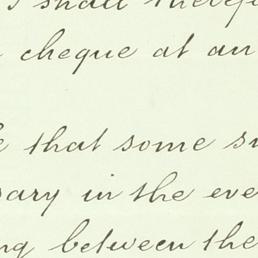 I shall therefo
cheque at an
e that some su
sary in the eve
ng between the